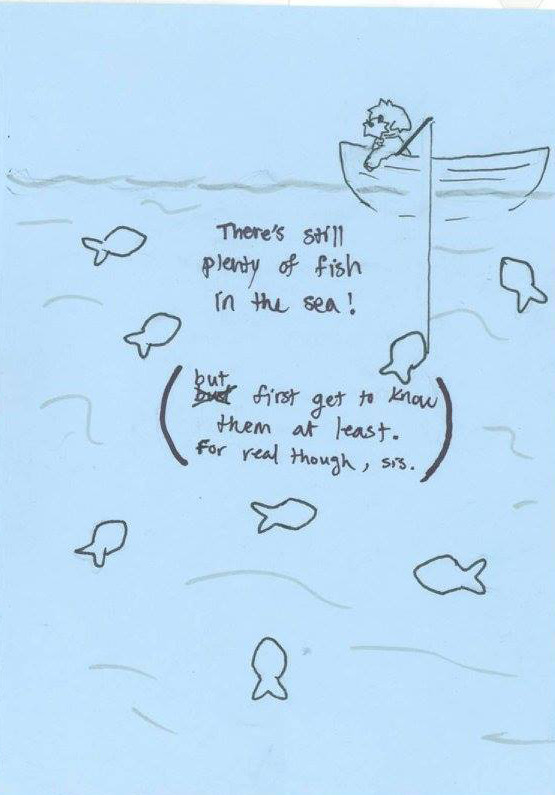 There's still
plenty of fish
in the sea!
(but
first get to know
them at least.
For real though, sis.)